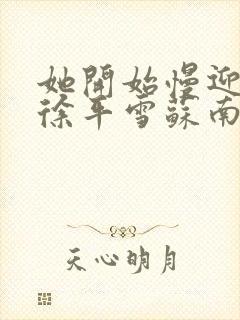 她開始慢迎
徐平雪蘇南
天心明月